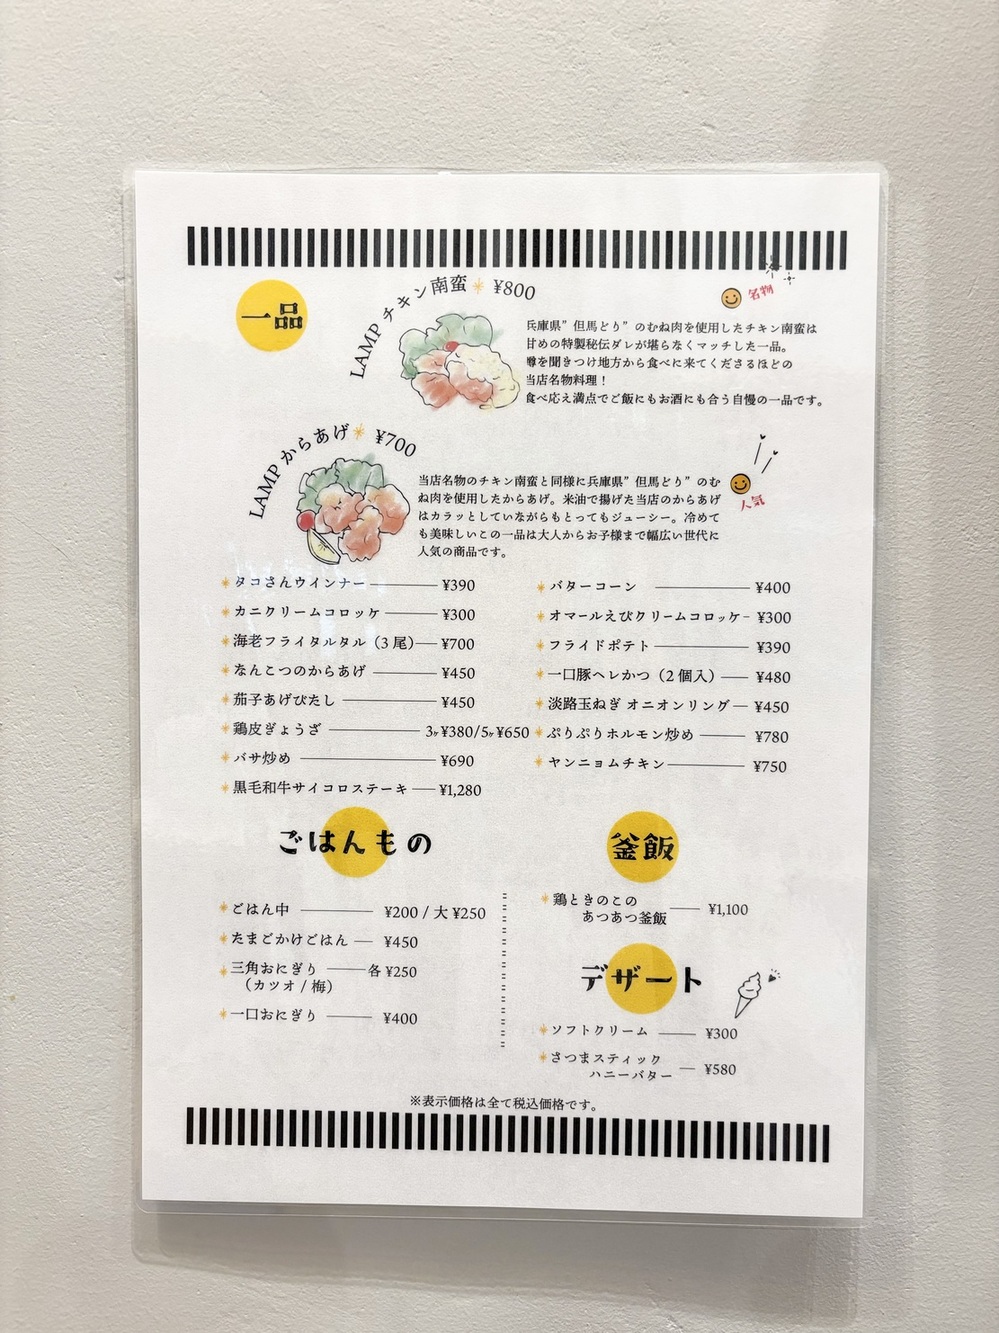 一品
LAMP チキン南蛮 ¥800
名物
兵庫県”但馬どり”のむね肉を使用したチキン南蛮は
甘めの特製秘伝ダレが堪らなくマッチした一品。
噂を聞きつけ地方から食べに来てくださるほどの
当店名物料理！
食べ応え満点でご飯にもお酒にも合う自慢の一品です。
LAMP からあげ ¥700
人気
当店名物のチキン南蛮と同様に兵庫県”但馬どり”のむ
ね肉を使用したからあげ。米油で揚げた当店のからあげ
はカラッとしていながらもとってもジューシー。冷めて
も美味しいこの一品は大人からお子様まで幅広い世代に
人気の商品です。
タコさんウインナー ¥390
カニクリームコロッケ ¥300
海老フライタルタル（3尾） ¥700
なんこつのからあげ ¥450
茄子あげびたし ¥450
鶏皮ぎょうざ 3ヶ¥380/5ヶ¥650
バサ炒め ¥690
黒毛和牛サイコロステーキ ¥1,280
バターコーン ¥400
オマールえびクリームコロッケ ¥300
フライドポテト ¥390
一口豚ヘレかつ（2個入） ¥480
淡路玉ねぎ オニオンリング ¥450
ぷりぷりホルモン炒め ¥780
ヤンニョムチキン ¥750
ごはんもの
ごはん中 ¥200 / 大 ¥250
たまごかけごはん ¥450
三角おにぎり 各 ¥250
（カツオ / 梅）
一口おにぎり ¥400
釜飯
鶏ときのこの
あつあつ釜飯 ¥1,100
デザート
ソフトクリーム ¥300
さつまスティック
ハニーバター ¥580
※表示価格は全て税込価格です。